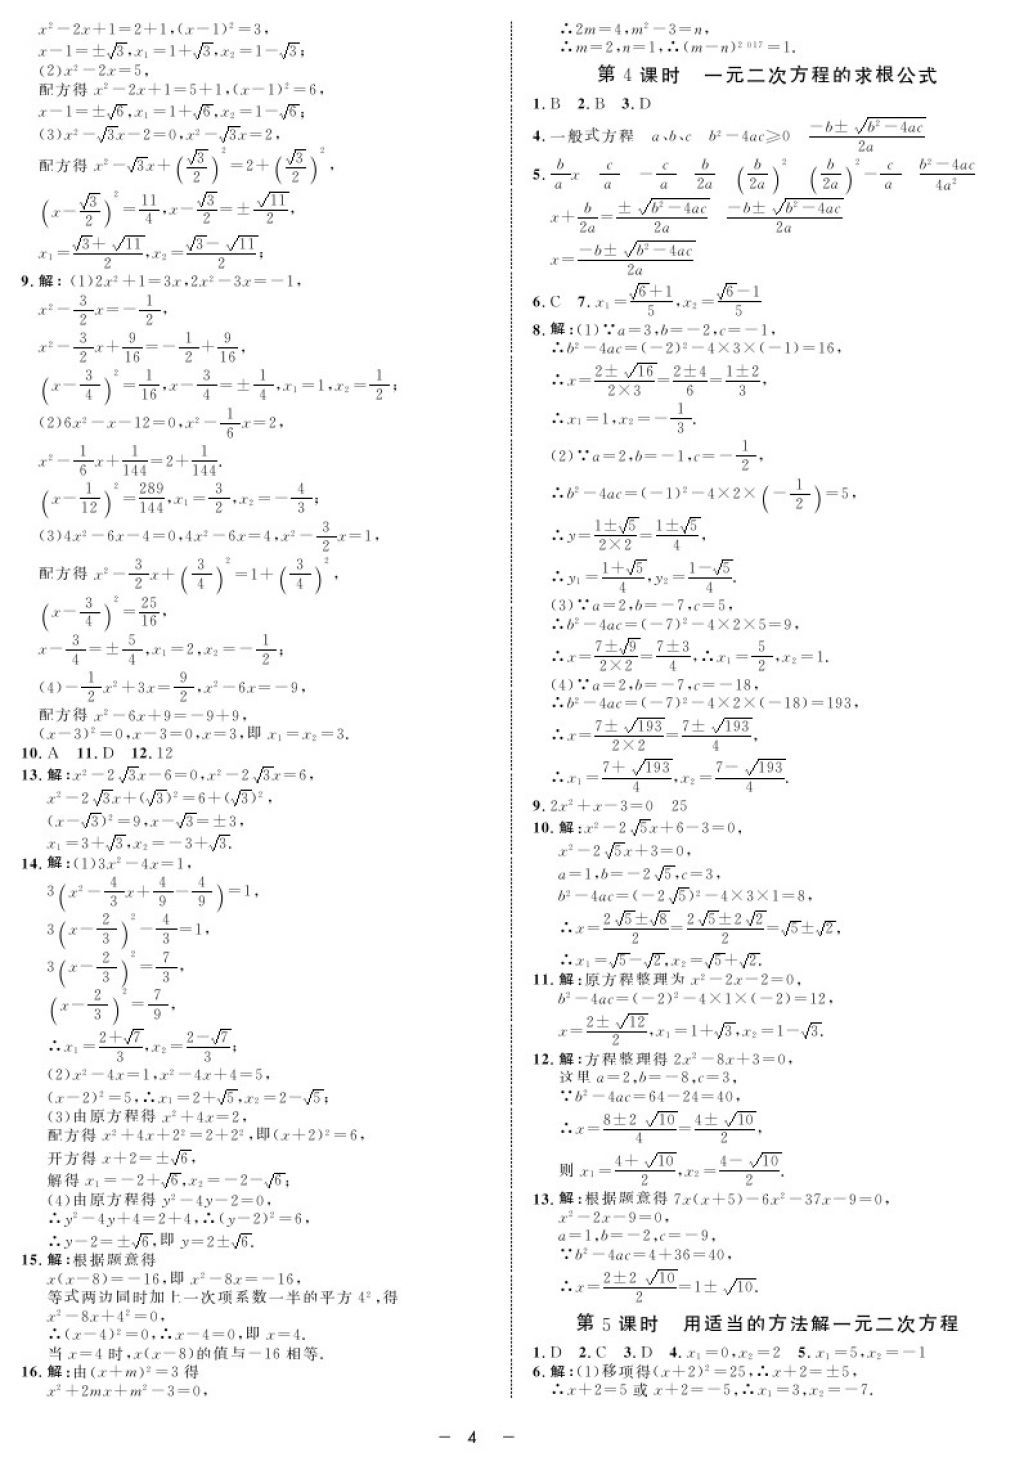 x²-2x+1=2+1,(x-1)²=3,
x-1=±√3,x₁=1+√3,x₂=1-√3;
(2)x²-2x=5,
配方得 x²-2x+1=5+1,(x-1)²=6,
x-1=±√6,x₁=1+√6,x₂=1-√6;
(3)x²-√3x-2=0,x²-√3x=2,
配方得 x²-√3x+(√3/2)²=2+(√3/2)²,
(x-√3/2)²=11/4,x-√3/2=±√11/2,
x₁=(√3+√11)/2,x₂=(√3-√11)/2;
9.解:(1)2x²+1=3x,2x²-3x=-1,
x²-3/2x=-1/2,
x²-3/2x+9/16=-1/2+9/16,
(x-3/4)²=1/16,x-3/4=±1/4,x₁=1,x₂=1/2;
(2)6x²-x-12=0,x²-1/6x=2,
x²-1/6x+1/144=2+1/144.
(x-1/12)²=289/144,x₁=3/2,x₂=-4/3;
(3)4x²-6x-4=0,4x²-6x=4,x²-3/2x=1,
配方得 x²-3/2x+(3/4)²=1+(3/4)²,
(x-3/4)²=25/16,
x-3/4=±5/4,x₁=2,x₂=-1/2;
(4)-1/2x²+3x=9/2,x²-6x=-9,
配方得 x²-6x+9=-9+9,
(x-3)²=0,x-3=0,x=3,即 x₁=x₂=3.
10.A 11.D 12.12
13.解:x²-2√3x-6=0,x²-2√3x=6,
x²-2√3x+(√3)²=6+(√3)²,
(x-√3)²=9,x-√3=±3,
x₁=3+√3,x₂=-3+√3.
14.解:(1)3x²-4x=1,
3(x²-4/3x+4/9-4/9)=1,
3(x-2/3)²-4/3=1,
3(x-2/3)²=7/3,
(x-2/3)²=7/9,
∴x₁=(2+√7)/3,x₂=(2-√7)/3;
(2)x²-4x=1,x²-4x+4=5,
(x-2)²=5,∴x₁=2+√5,x₂=2-√5;
(3)由原方程得 x²+4x=2,
配方得 x²+4x+2²=2+2²,即(x+2)²=6,
开方得 x+2=±√6,
解得 x₁=-2+√6,x₂=-2-√6;
(4)由原方程得 y²-4y-2=0,
∴y²-4y+4=2+4,∴(y-2)²=6,
∴y-2=±√6,即 y=2±√6.
15.解:根据题意得
x(x-8)=-16,即 x²-8x=-16,
等式两边同时加上一次项系数一半的平方 4²,得
x²-8x+4²=0,
∴(x-4)²=0,∴x-4=0,即 x=4.
当 x=4 时,x(x-8)的值与-16 相等.
16.解:由(x+m)²=3 得
x²+2mx+m²-3=0,
∴2m=4,m²-3=n,
∴m=2,n=1,∴(m-n)²⁰¹⁷=1.
第 4 课时 一元二次方程的求根公式
1.B 2.B 3.D
4.一般式方程 a、b、c b²-4ac≥0 (-b±√(b²-4ac))/2a
5.b/a x c/a -c/a b/2a (b/2a)² (b/2a)²-c/a (b²-4ac)/4a²
x+b/2a=±√(b²-4ac)/2a (-b±√(b²-4ac))/2a
x=(-b±√(b²-4ac))/2a
6.C 7.x₁=(√6+1)/5,x₂=(√6-1)/5
8.解:(1)∵a=3,b=-2,c=-1,
∴b²-4ac=(-2)²-4×3×(-1)=16,
∴x=(2±√16)/(2×3)=(2±4)/6=(1±2)/3,
∴x₁=1,x₂=-1/3.
(2)∵a=2,b=-1,c=-1/2,
∴b²-4ac=(-1)²-4×2×(-1/2)=5,
∴y=(1±√5)/(2×2)=(1±√5)/4,
∴y₁=(1+√5)/4,y₂=(1-√5)/4.
(3)∵a=2,b=-7,c=5,
∴b²-4ac=(-7)²-4×2×5=9,
∴x=(7±√9)/(2×2)=(7±3)/4,∴x₁=5/2,x₂=1.
(4)∵a=2,b=-7,c=-18,
∴b²-4ac=(-7)²-4×2×(-18)=193,
∴x=(7±√193)/(2×2)=(7±√193)/4,
∴x₁=(7+√193)/4,x₂=(7-√193)/4.
9.2x²+x-3=0 25
10.解:x²-2√5x+6-3=0,
x²-2√5x+3=0,
a=1,b=-2√5,c=3,
b²-4ac=(-2√5)²-4×3×1=8,
∴x=(2√5±√8)/2=(2√5±2√2)/2=√5±√2,
∴x₁=√5-√2,x₂=√5+√2.
11.解:原方程整理为 x²-2x-2=0,
b²-4ac=(-2)²-4×1×(-2)=12,
x=(2±√12)/2,x₁=1+√3,x₂=1-√3.
12.解:方程整理得 2x²-8x+3=0,
这里 a=2,b=-8,c=3,
∵b²-4ac=64-24=40,
∴x=(8±2√10)/4=(4±√10)/2,
则 x₁=(4+√10)/2,x₂=(4-√10)/2.
13.解:根据题意得 7x(x+5)-6x²-37x-9=0,
x²-2x-9=0,
a=1,b=-2,c=-9,
∵b²-4ac=4+36=40,
∴x=(2±2√10)/2=1±√10.
第 5 课时 用适当的方法解一元二次方程
1.D 2.C 3.D 4.x₁=0,x₂=2 5.x₁=5,x₂=-1
6.解:(1)移项得(x+2)²=25,∴x+2=±5,
∴x+2=5 或 x+2=-5,∴x₁=3,x₂=-7.
- 4 -